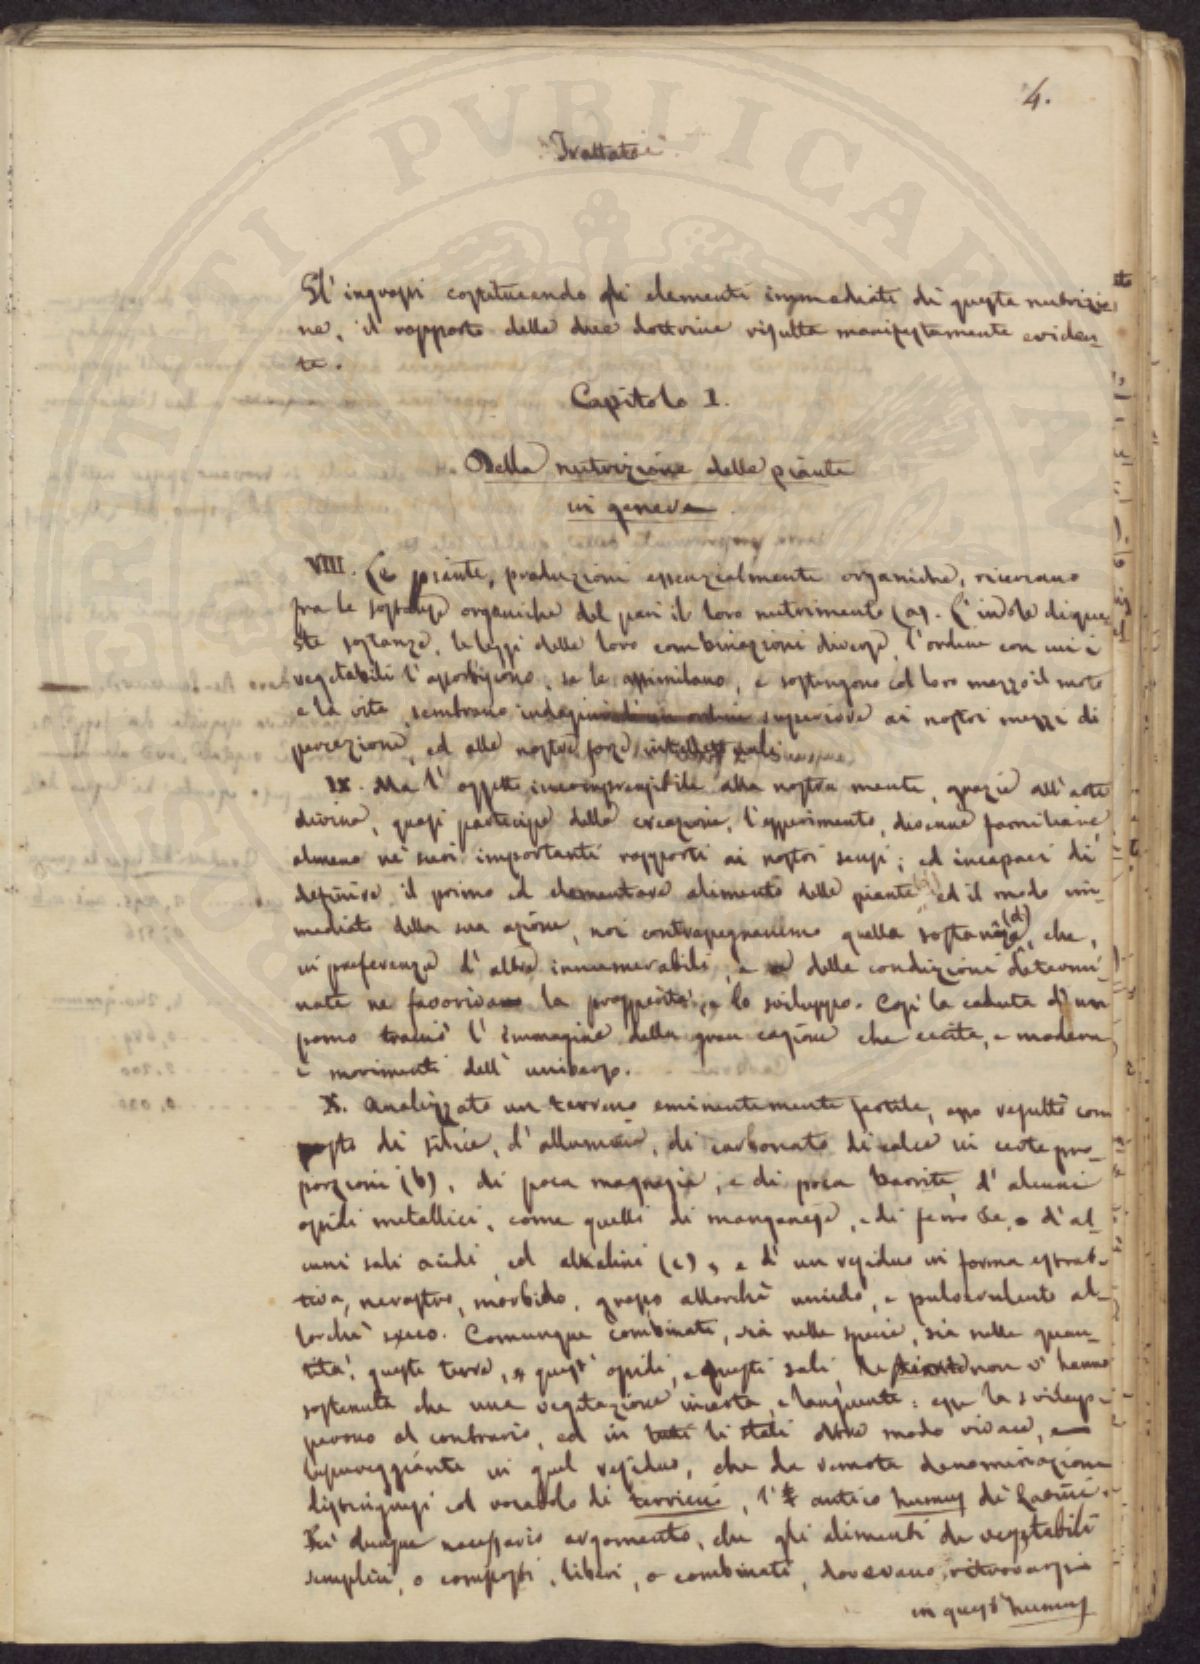 4.
Trattato
Gl'ingrassi costituendo gli elementi immediati di questa nutrizio
ne, il rapporto delle due dottrine risulta manifestamente eviden-
te.
Capitolo I.
Della nutrizione delle piante
in genere
VIII. Le piante, produzioni essenzialmente organiche, ricevano
fra le sostanze organiche del pari il loro nutrimento (a). L'indole di que
ste sostanze, le leggi delle loro combinazioni diverse, l'ordine con cui i
vegetabili l'assorbiscono, se le assimilano, e sostengono col loro mezzo il moto
e la vita, sembrano superiore ai nostri mezzi di
percezione, ed alle nostre forze intellettuali
IX. Ma l'oggetto incomprensibile alla nostra mente, grazie all'arte
divina, quasi partecipe della creazione, l'esperimento, divenne familiare
almeno ne' suoi importanti rapporti ai nostri sensi; ed incapaci di
definire il primo ed elementare alimento delle piante ed il modo im-
mediato della sua azione, noi contrassegnammo quella sostanza (d), che,
in preferenza d'altre innumerabili, e delle condizioni determi
nate ne favorivano la prosperità, e lo sviluppo. Così la caduta d'un
pomo tracciò l'immagine della gran cagione che eccita, e modera
i movimenti dell'universo.
X. Analizzato un terreno eminentemente fertile, esso risultò com
posto di silice, d'allumina, di carbonato di calce in certe pro-
porzioni (b), di poca magnesia, e di poca barite, d'alcuni
ossidi metallici, come quelli di manganese, e di ferro &c. e d'al-
cuni sali acidi, ed alkalini (c), e d'un residuo in forma estrat-
tiva, nerastro, morbido, grasso allorchè umido, e pulverulento al-
lorchè secco. Comunque combinati, sia nelle specie, sia nelle quan-
tità, queste terre, e quest'ossidi, e questi sali, le piante non v'hanno
sostenuta che una vegetazione incerta, e languente: esse la svilup-
parono al contrario, ed in tutti li stati oltre modo vivace, e
lussureggiante in quel residuo, che da remota denominazione
distinguesi col vocabolo di terriccio, l'antico humus de' Latini.
Fu dunque necessario argomento, che gli alimenti de' vegetabili
semplici, o composti, liberi, o combinati, dovevano ritrovarsi
in quest'humus